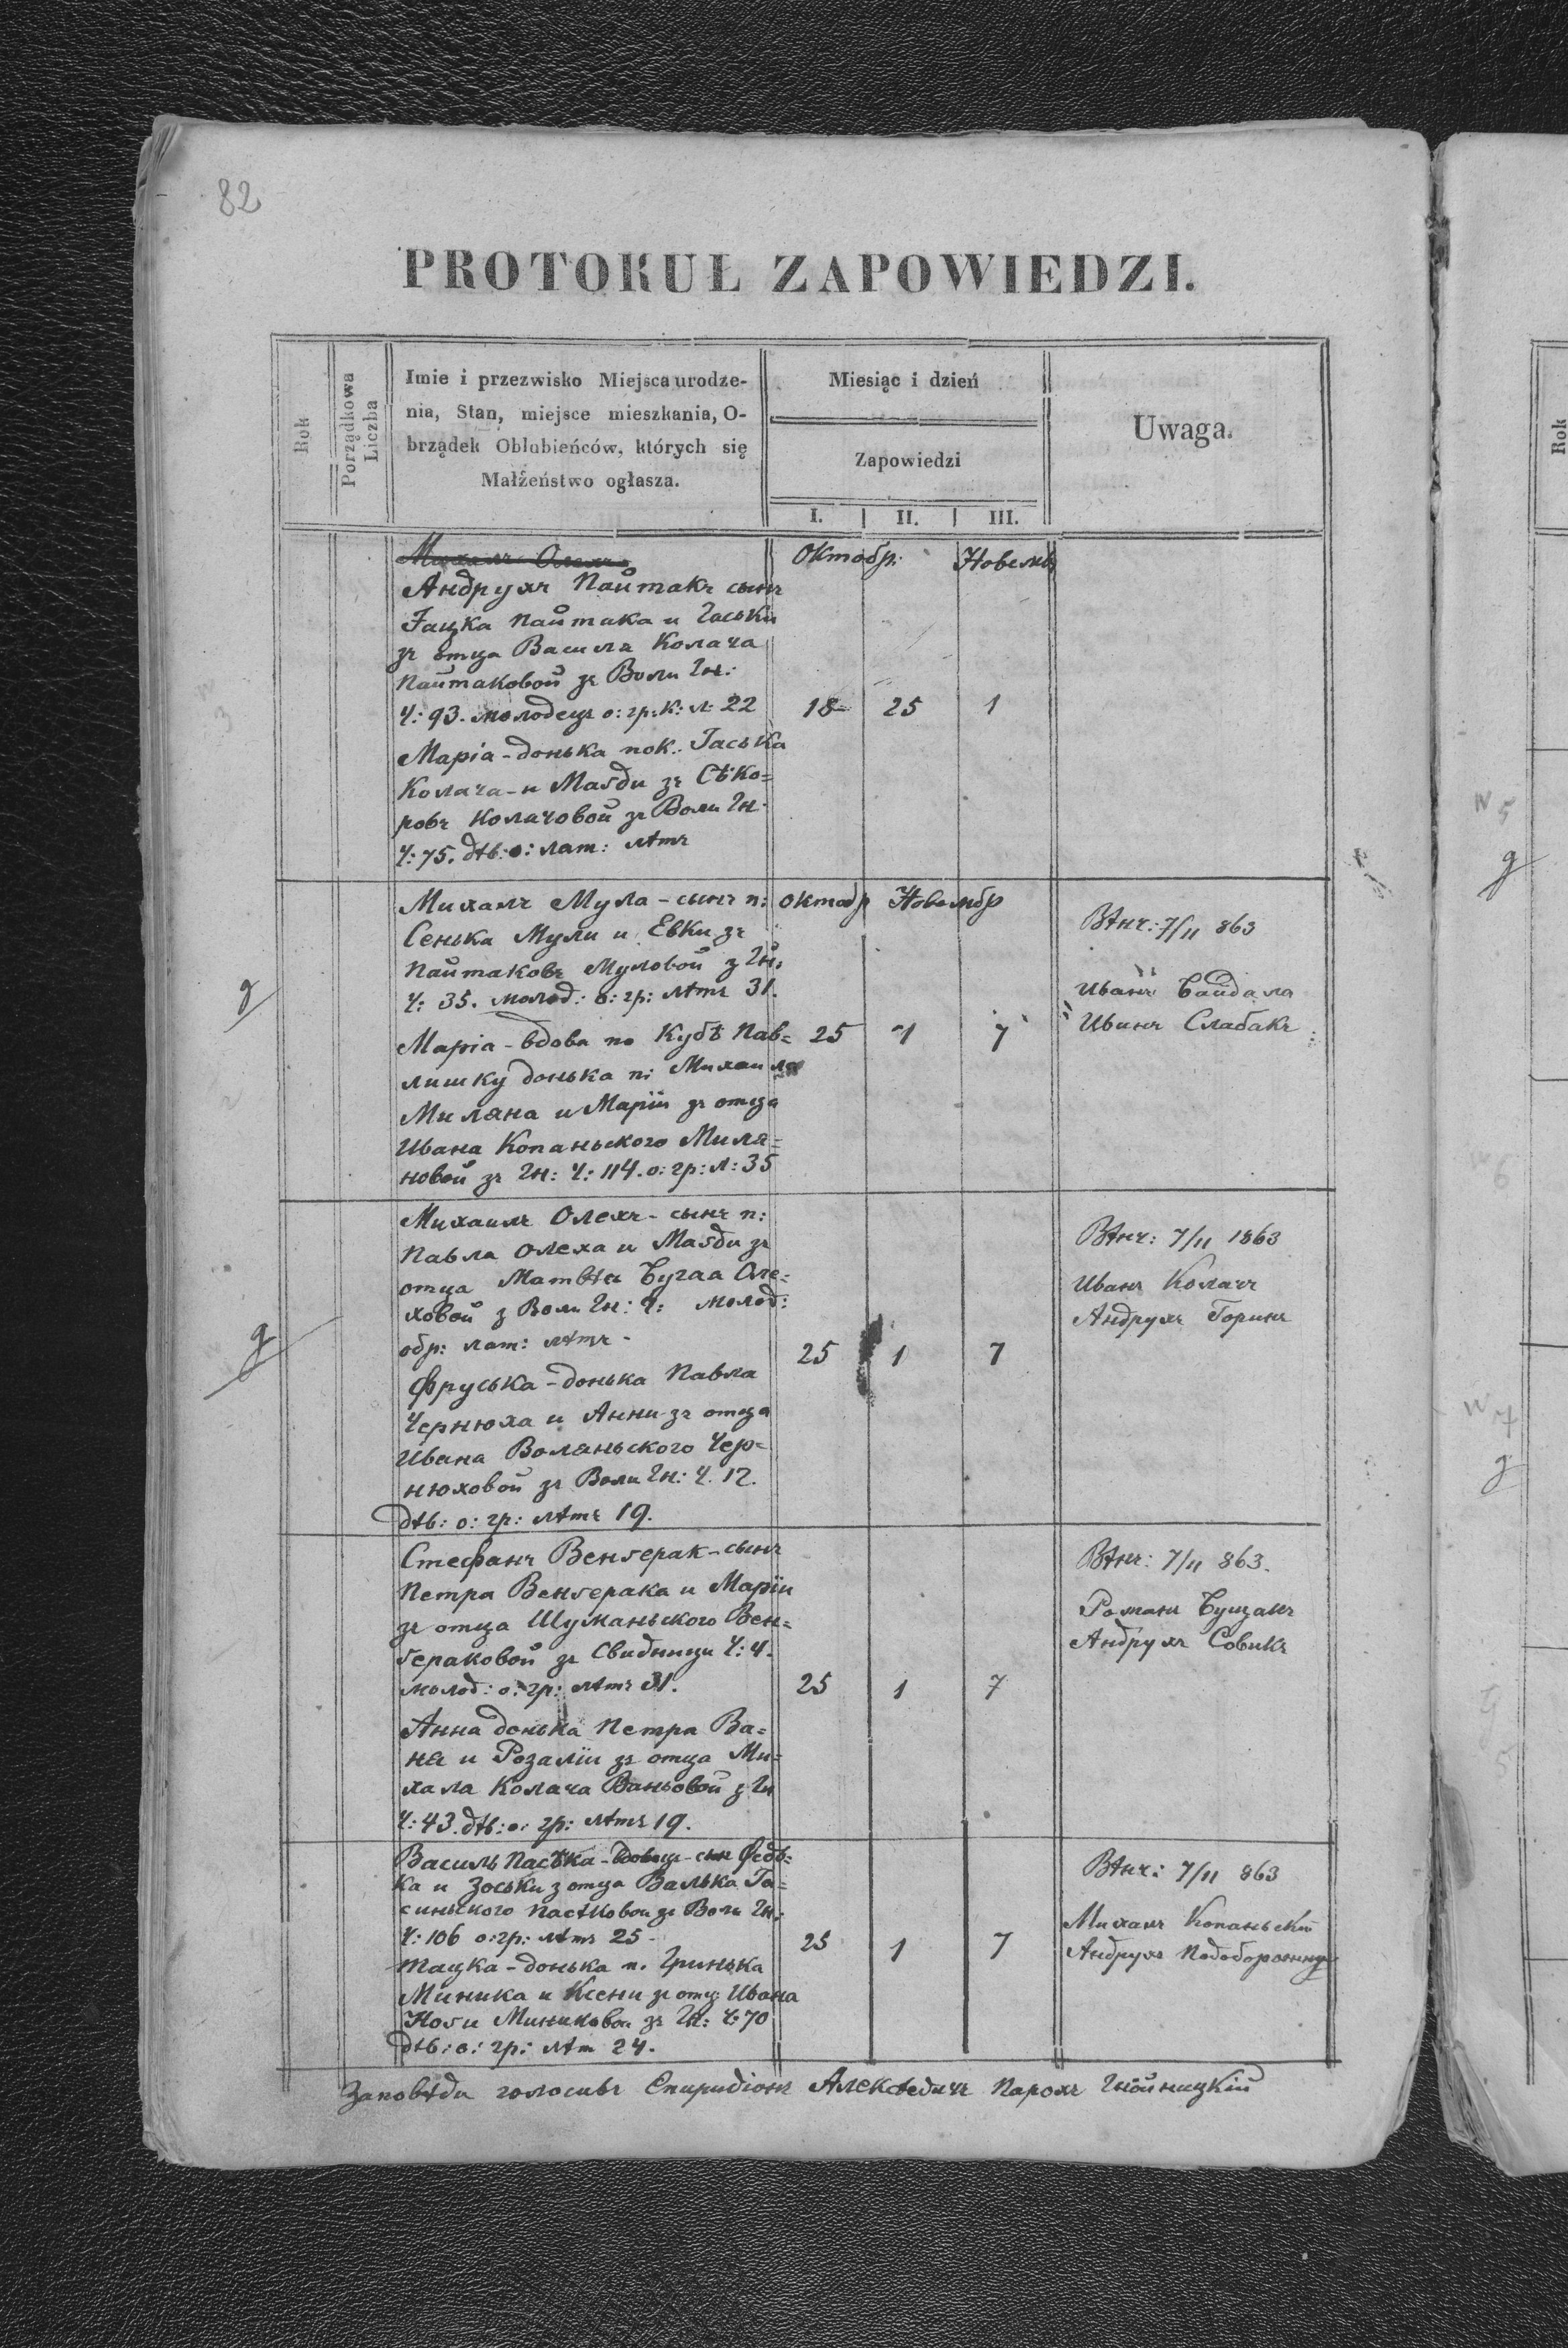 82
PROTOKUŁ ZAPOWIEDZI.
Rok
Porządkowa Liczba
Imie i przezwisko Miejsca urodze-
nia, Stan, miejsce mieszkania, O-
brządek Oblubieńców, których się
Małżeństwo ogłasza.
Miesiąc i dzień
Zapowiedzi
I. II. III.
Uwaga.
Михалъ Олехъ
Октобр. Новемб
Андрухъ Пайтакъ сынъ
Яцка Пайтака и Гаськи
зъ отца Василя Колача
Пайтаковои̂ зъ Воли Гн:
Ч: 93. молодецъ о: гр: к: л: 22
18 25 1
Маріа - донька пок: Гаська
Колача - и Маґди зъ Сѣко=
ровъ Колачовои̂ зъ Воли Гн.
Ч: 75. дѣв: о: лат: лѣтъ
Михалъ Мула - сынъ п:
Октобр Новембр
Сенька Мули и Евки зъ
Пайтаковъ Муловои̂ з Гн:
Ч: 35. молод: о: гр: лѣтъ 31.
Маріа - вдова по Кубѣ Пав=
лишку донька п: Михаила
Миляна и Маріи зъ отца
Ивана Копаньского Миля=
новои̂ зъ Гн: Ч: 114. о: гр: л: 35
25 1 7
Вѣнч: 7/11 863
Иванъ Байдала
Иванъ Слабакъ
g
Михаилъ Олехъ - сынъ п:
Павла Олеха и Маґди зъ
отца Матвѣя Бугаа Оле=
ховои̂ з Воли Гн: Ч: молод:
обр: лат: лѣтъ -
Фруська - донька Павла
Чернюха и Анни зъ отца
Ивана Воляньского Чер=
нюховои̂ зъ Воли Гн: Ч. 12.
дѣв: о: гр: лѣтъ 19.
25 1 7
Вѣнч: 7/11 1863
Иванъ Колачъ
Андрухъ Горинъ
g
Стефанъ Венґерак - сынъ
Петра Венґерака и Маріи
зъ отца Шуманьского Вен=
ґераковои̂ зъ Свидници Ч: 4.
молод: о: гр: лѣтъ 31.
Анна донька Петра Ва=
ня и Розаліи зъ отца Ми=
хала Колача Ваньовои̂ з Гн
Ч: 43. дѣв: о: гр: лѣтъ 19.
25 1 7
Вѣнч: 7/11 863.
Романъ Бущакъ
Андрухъ Совикъ
Василь Пасѣка - вдовецъ - сын Федь=
ка и Зоськи з отца Валька Га=
синьского Пасѣковои зъ Воли Гн:
Ч: 106 о: гр: лѣтъ 25 -
Тацка - донька п. Гринька
Миника и Ксени зъ отц: Ивана
Ноґи Миниковои зъ Гн: Ч: 70
дѣв: о: гр: лѣт 24.
25 1 7
Вѣнч: 7/11 863
Михалъ Копаньскій
Андрухъ
Заповѣди голосивъ Спиридіонъ Алексѣевичъ Парохъ Гнойницкій
Rok